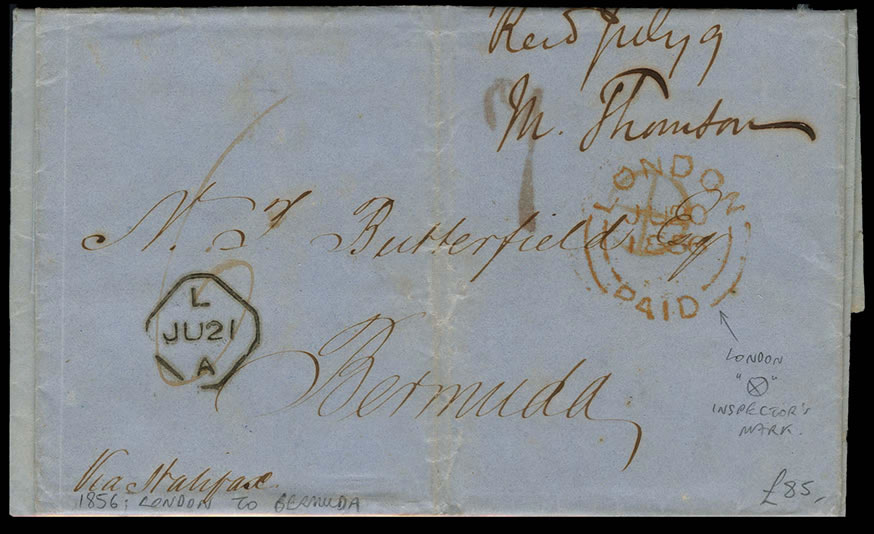 Recd July 9
M. Thomson
LONDON
JU 20
1856
PAID
N. T. Butterfield, Esq.
L
JU21
A
Bermuda
LONDON
"⊗"
INSPECTOR'S
MARK.
Via Halifax
1856: LONDON TO BERMUDA
£85,